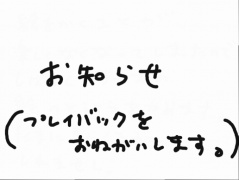 お知らせ
(プレイバックを
おねがいします。)